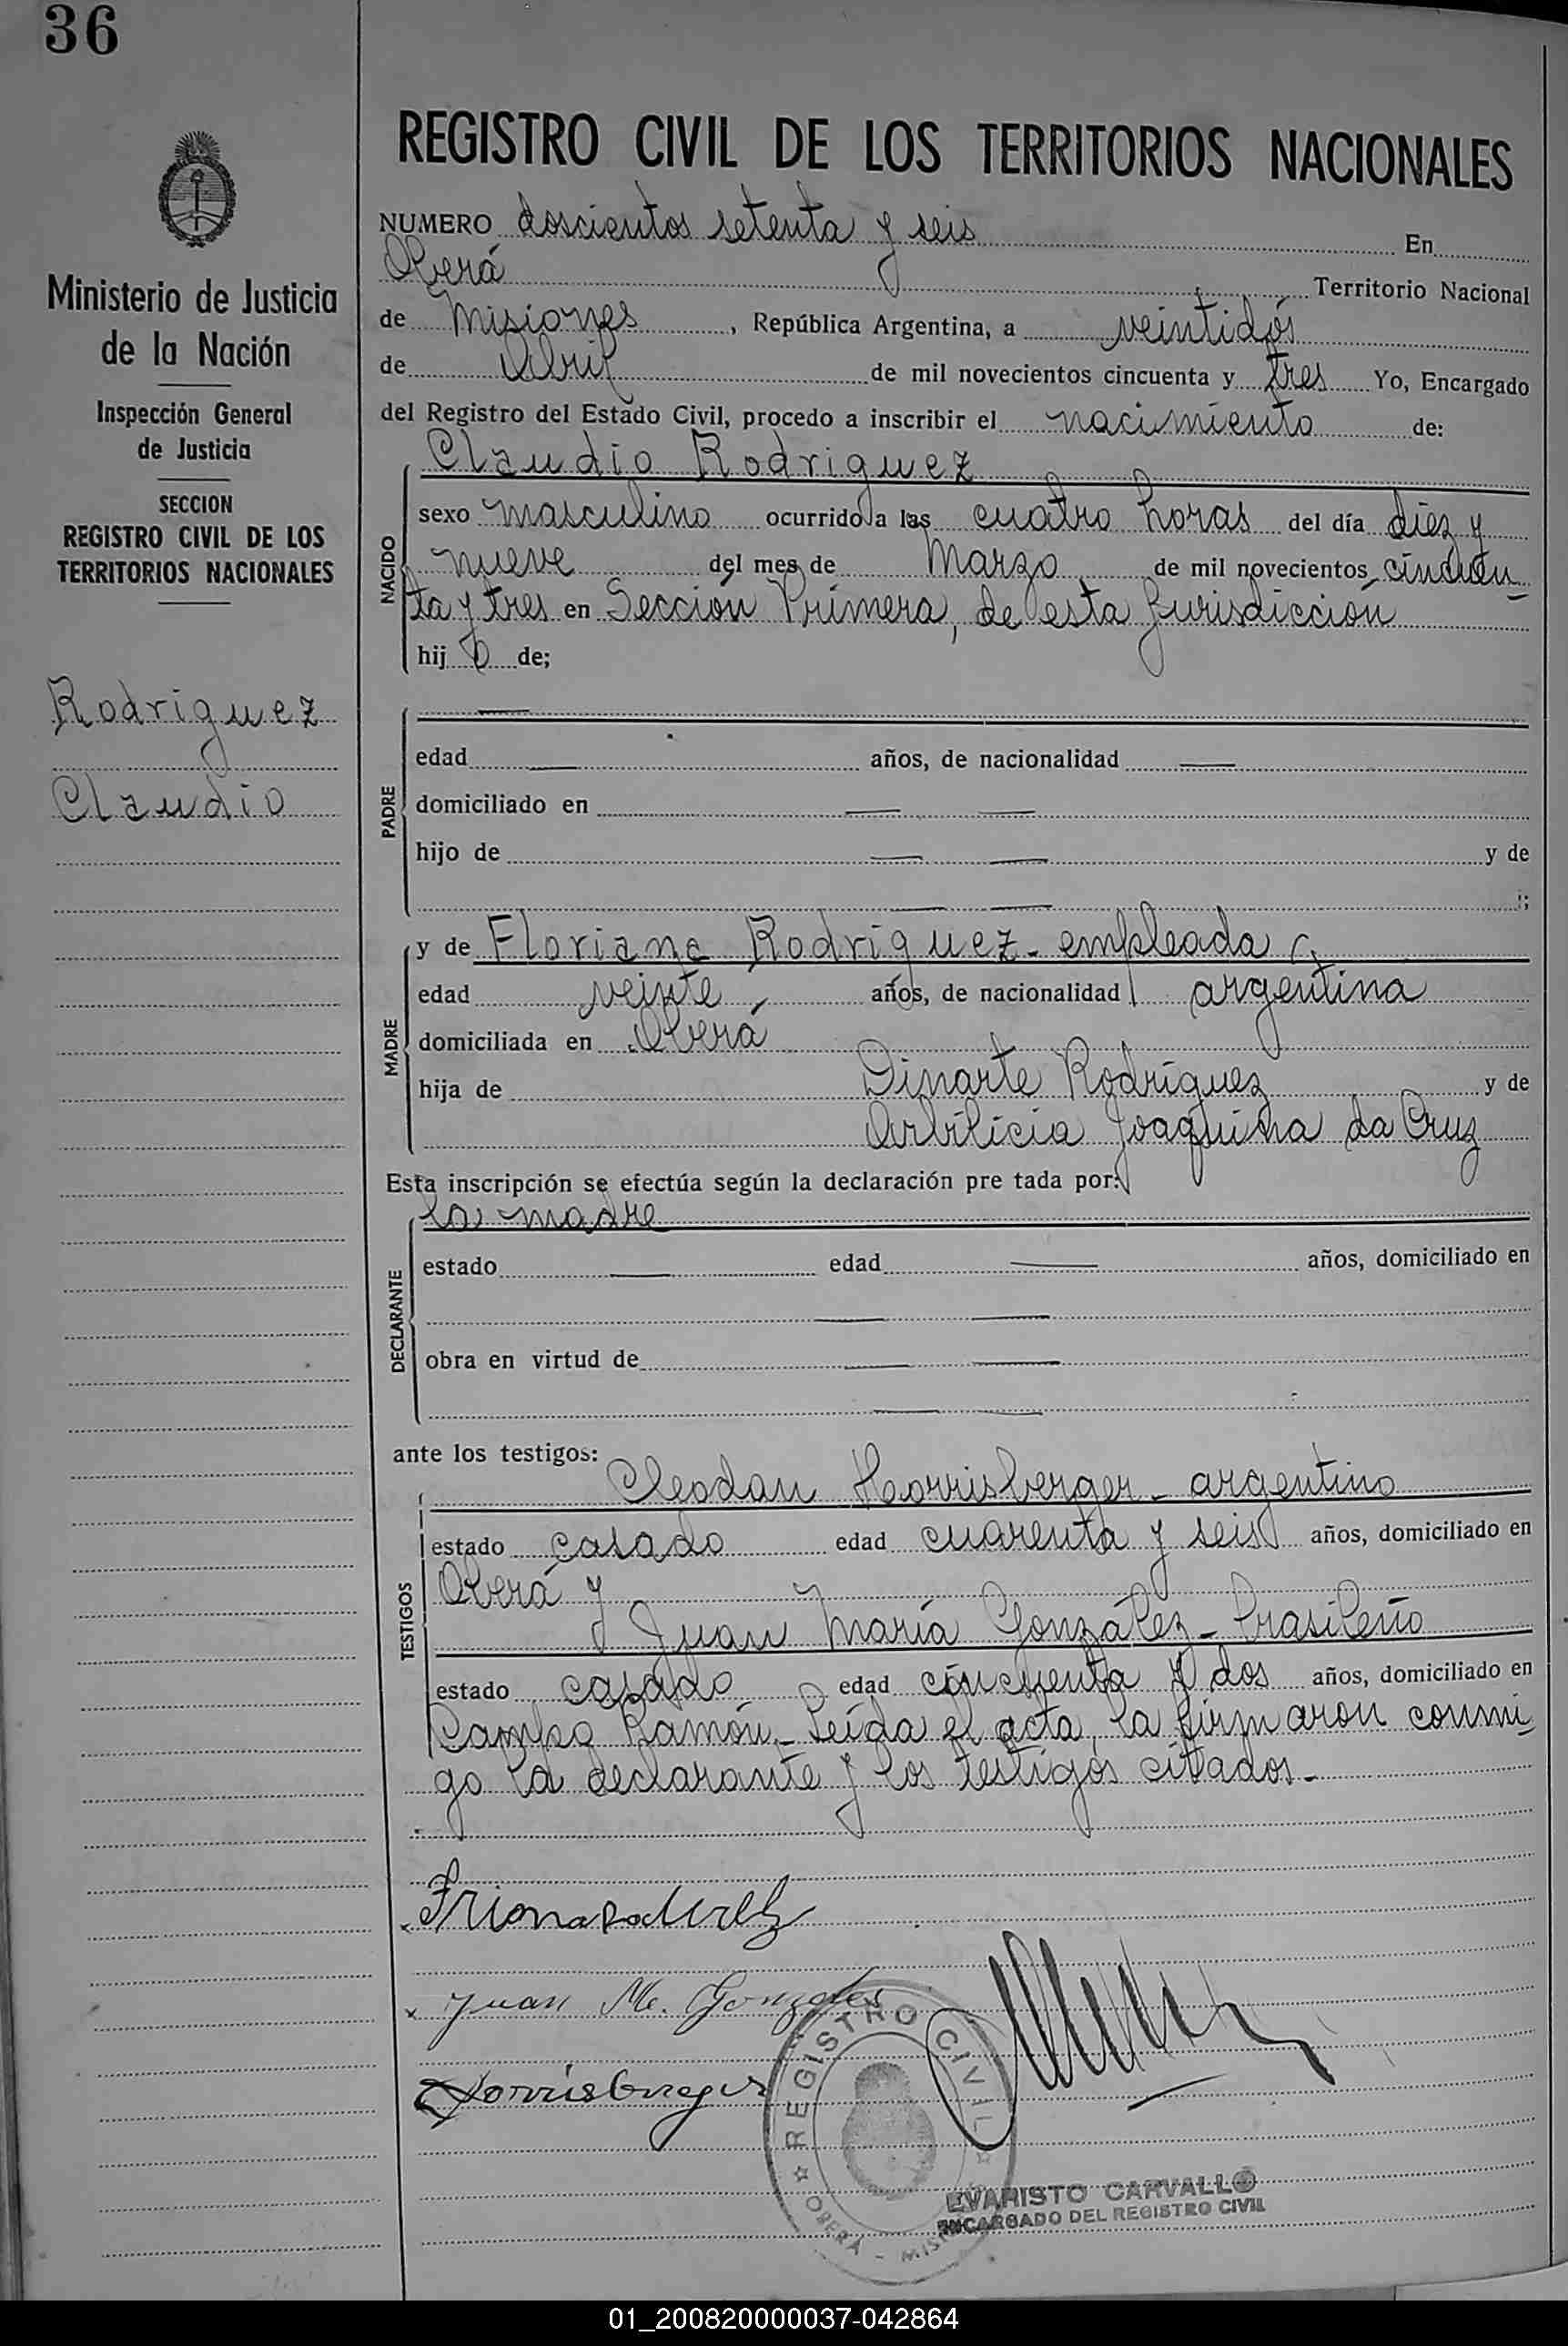 36
REGISTRO CIVIL DE LOS TERRITORIOS NACIONALES
Ministerio de Justicia
de la Nación
Inspección General
de Justicia
SECCION
REGISTRO CIVIL DE LOS
TERRITORIOS NACIONALES
Rodriguez
Claudio
NUMERO doscientos setenta y seis En
Oberá Territorio Nacional
de Misiones, República Argentina, a veintidós
de Abril de mil novecientos cincuenta y tres Yo, Encargado
del Registro del Estado Civil, procedo a inscribir el nacimiento de:
Claudio Rodriguez
NACIDO
sexo masculino ocurrido a las cuatro horas del día diez y
nueve del mes de Marzo de mil novecientos cincuen-
ta y tres en Sección Primera, de esta Jurisdicción
hij o de;
PADRE
edad años, de nacionalidad
domiciliado en
hijo de y de
;
MADRE
y de Floriana Rodriguez - empleada
edad veinte años, de nacionalidad argentina
domiciliada en Oberá
hija de Dinarte Rodríguez y de
Arbilicia Joaquina da Cruz
Esta inscripción se efectúa según la declaración pre tada por:
la madre
DECLARANTE
estado edad años, domiciliado en
obra en virtud de
ante los testigos:
TESTIGOS
Cleodan Horrisberger - argentino
estado casado edad cuarenta y seis años, domiciliado en
Oberá y
Juan María González - brasileño
estado casado edad cincuenta y dos años, domiciliado en
Campo Ramón.- Leída el acta, la firmaron conmi-
go la declarante y los testigos citados.-
Juan M. Gonzales
Horrisberger
REGISTRO CIVIL
OBERA - MISIONES
EVARISTO CARVALLO
ENCARGADO DEL REGISTRO CIVIL
01_200820000037-042864